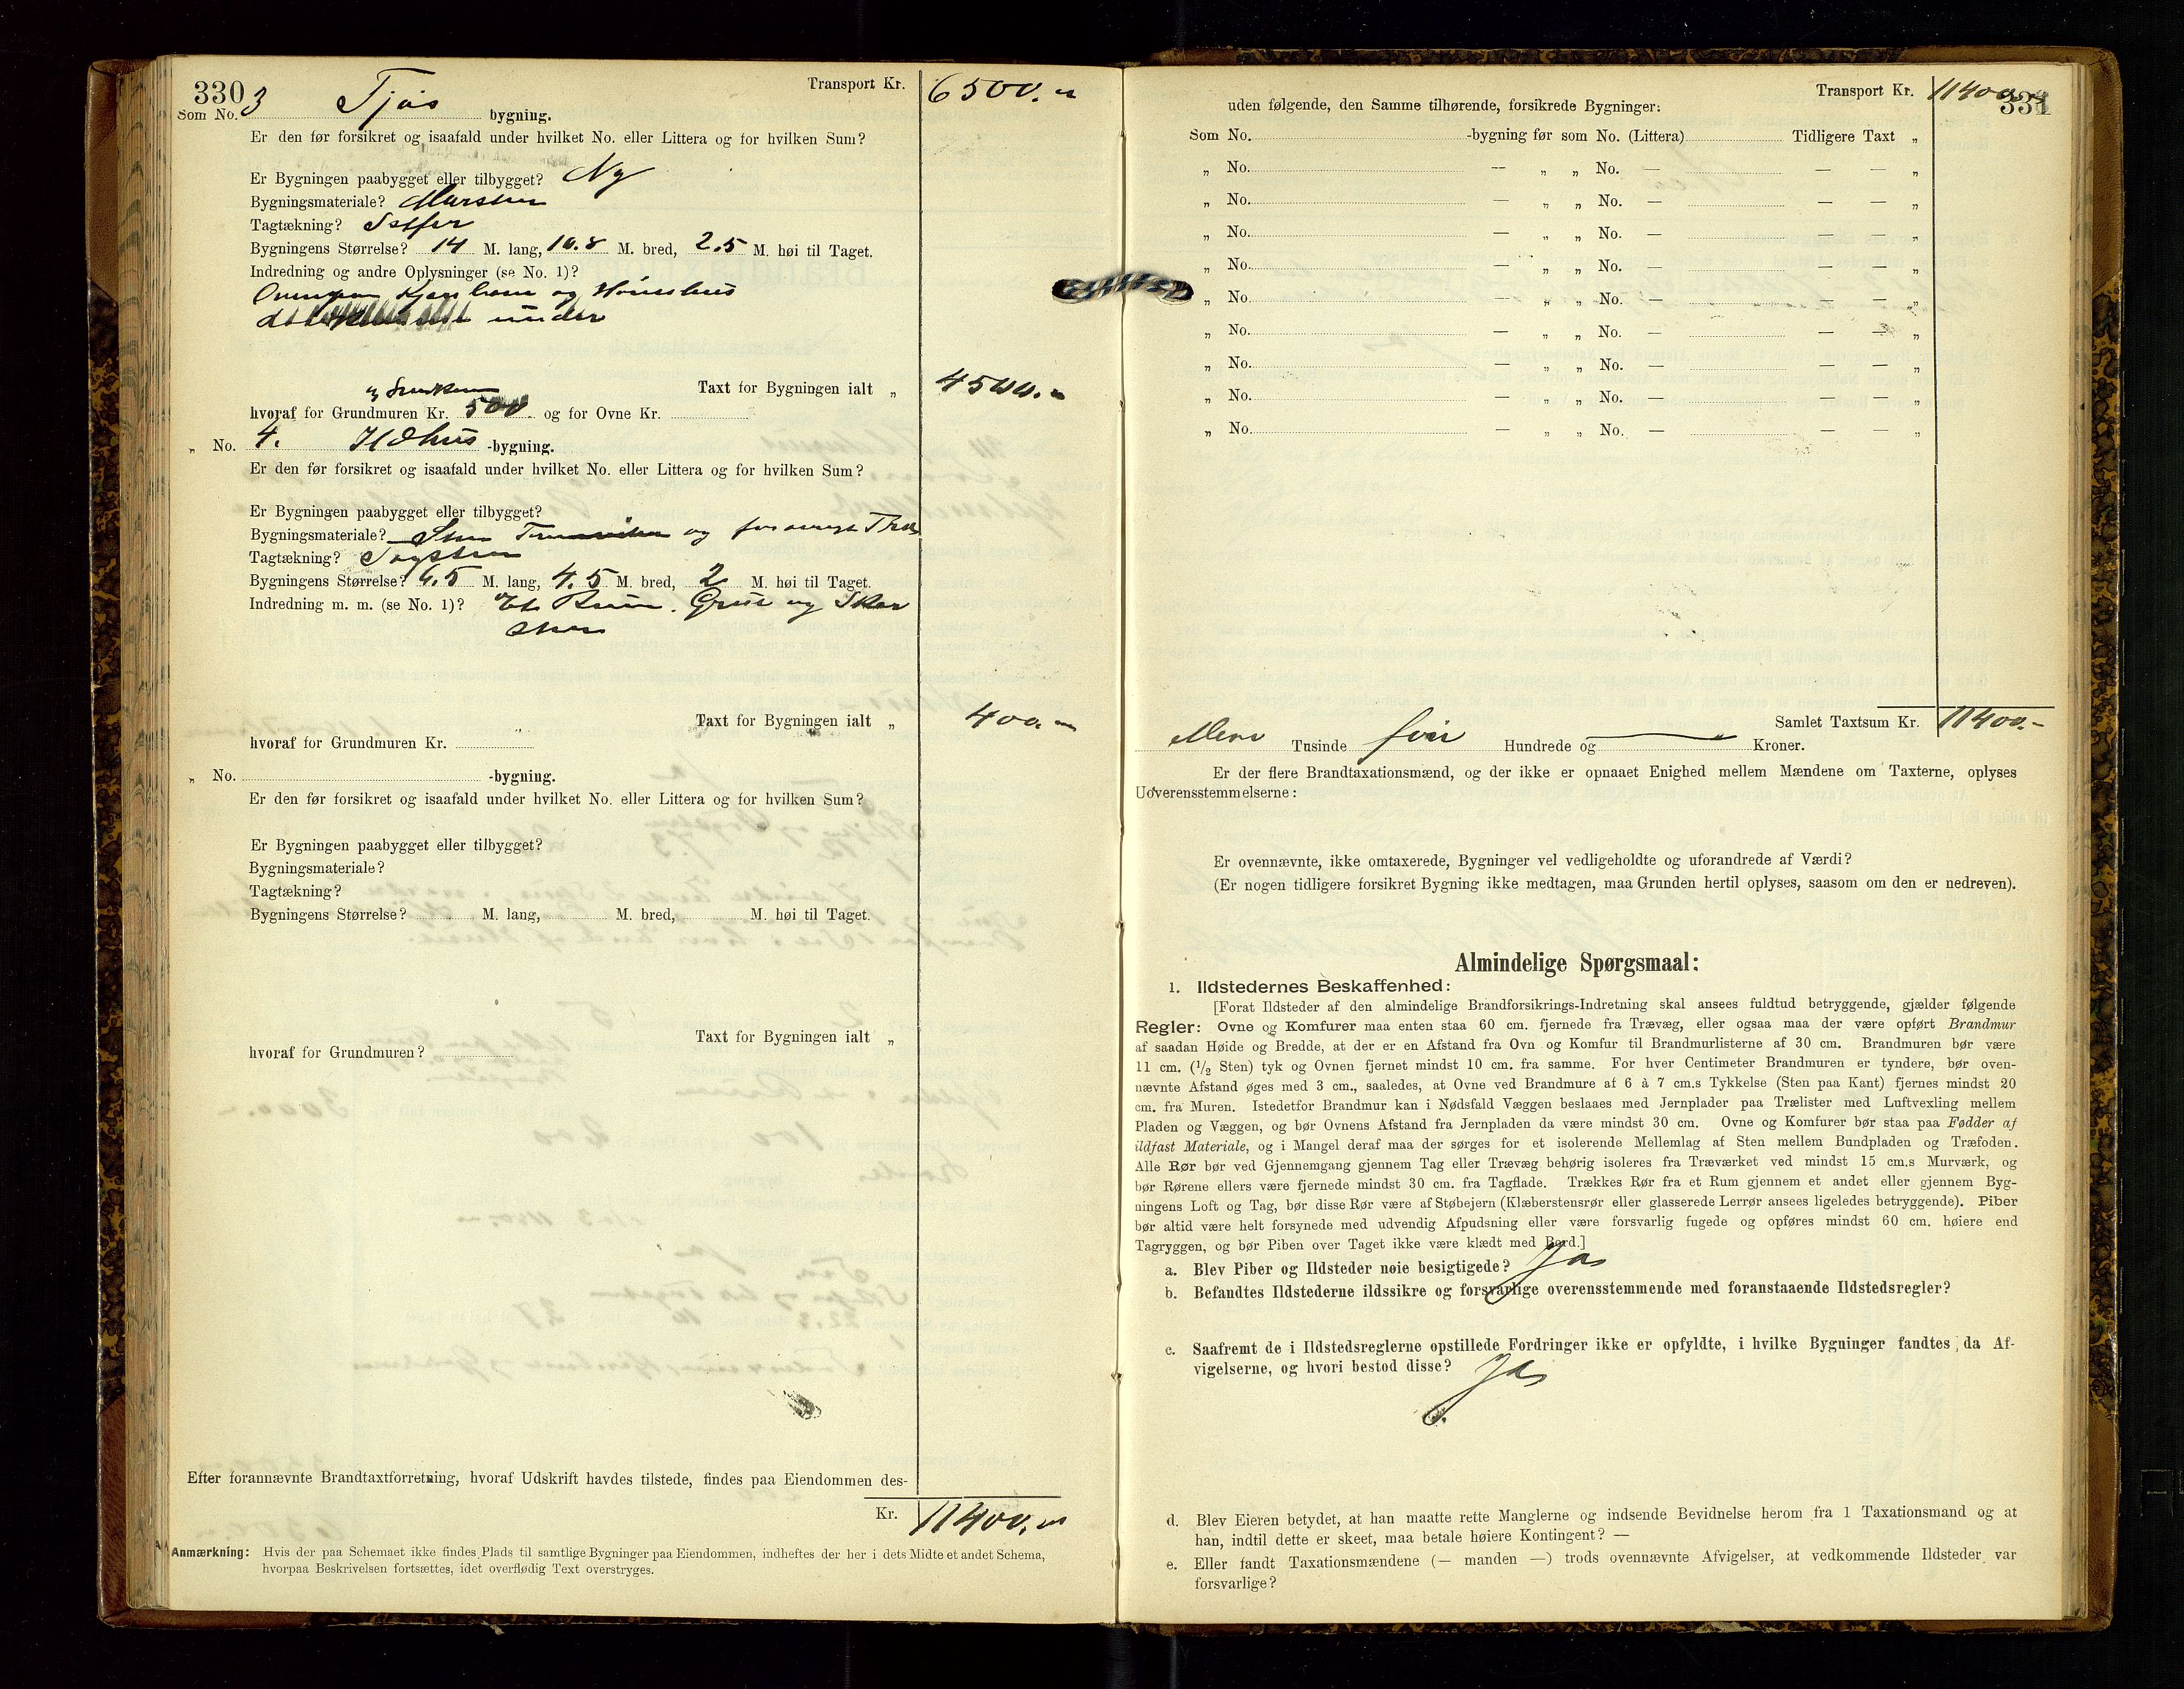 330
Transport Kr. 6500.
Som No. 3 Fjøs bygning.
Er den før forsikret og isaafald under hvilket No. eller Littera og for hvilken Sum?
Er Bygningen paabygget eller tilbygget? Ny
Bygningsmateriale? Mursten
Tagtækning? Skifer
Bygningens Størrelse? 14 M. lang, 10.8 M. bred, 2.5 M. høi til Taget.
Indredning og andre Oplysninger (se No. 1)?
og Hønsehus
under
Taxt for Bygningen ialt „ 4500.
hvoraf for Grundmuren Kr. 500 og for Ovne Kr.
„ No. 4. Ildhus -bygning.
Er den før forsikret og isaafald under hvilket No. eller Littera og for hvilken Sum?
Er Bygningen paabygget eller tilbygget?
Bygningsmateriale? Sten og forøvrigt Træ
Tagtækning? Tagsten
Bygningens Størrelse? 6.5 M. lang, 4.5 M. bred, 2 M. høi til Taget.
Indredning m. m. (se No. 1)? Et Rum. Grue og Skor
sten
Taxt for Bygningen ialt „ 400.
hvoraf for Grundmuren Kr.
„ No. -bygning.
Er den før forsikret og isaafald under hvilket No. eller Littera og for hvilken Sum?
Er Bygningen paabygget eller tilbygget?
Bygningsmateriale?
Tagtækning?
Bygningens Størrelse? M. lang, M. bred, M. høi til Taget.
Taxt for Bygningen ialt „
hvoraf for Grundmuren?
Efter forannævnte Brandtaxtforretning, hvoraf Udskrift havdes tilstede, findes paa Eiendommen des-
Kr. 11400.
Anmærkning: Hvis der paa Schemaet ikke findes Plads til samtlige Bygninger paa Eiendommen, indheftes der her i dets Midte et andet Schema,
hvorpaa Beskrivelsen fortsættes, idet overflødig Text overstryges.
Transport Kr. 11400.
331
uden følgende, den Samme tilhørende, forsikrede Bygninger:
Som No. -bygning før som No. (Littera) Tidligere Taxt „
„ No. — „ „ No. — — — „
„ No. — „ „ No. — — — „
„ No. — „ „ No. — — — „
„ No. — „ „ No. — — — „
„ No. — „ „ No. — — — „
„ No. — „ „ No. — — — „
„ No. — „ „ No. — — — „
„ No. — „ „ No. — — — „
„ No. — „ „ No. — — — „
Samlet Taxtsum Kr. 11400.-
Tusinde fire Hundrede og — Kroner.
Er der flere Brandtaxationsmænd, og der ikke er opnaaet Enighed mellem Mændene om Taxterne, oplyses
Uoverensstemmelserne:
Er ovennævnte, ikke omtaxerede, Bygninger vel vedligeholdte og uforandrede af Værdi?
(Er nogen tidligere forsikret Bygning ikke medtagen, maa Grunden hertil oplyses, saasom om den er nedreven).
Almindelige Spørgsmaal:
1. Ildstedernes Beskaffenhed:
[Forat Ildsteder af den almindelige Brandforsikrings-Indretning skal ansees fuldtud betryggende, gjælder følgende
Regler: Ovne og Komfurer maa enten staa 60 cm. fjernede fra Trævæg, eller ogsaa maa der være opført Brandmur
af saadan Høide og Bredde, at der er en Afstand fra Ovn og Komfur til Brandmurlisterne af 30 cm. Brandmuren bør være
11 cm. (1/2 Sten) tyk og Ovnen fjernet mindst 10 cm. fra samme. For hver Centimeter Brandmuren er tyndere, bør oven-
nævnte Afstand øges med 3 cm., saaledes, at Ovne ved Brandmure af 6 à 7 cm.s Tykkelse (Sten paa Kant) fjernes mindst 20
cm. fra Muren. Istedetfor Brandmur kan i Nødsfald Væggen beslaaes med Jernplader paa Trælister med Luftvexling mellem
Pladen og Væggen, og bør Ovnens Afstand fra Jernpladen da være mindst 30 cm. Ovne og Komfurer bør staa paa Fødder af
ildfast Materiale, og i Mangel deraf maa der sørges for et isolerende Mellemlag af Sten mellem Bundpladen og Træfoden.
Alle Rør bør ved Gjennemgang gjennem Tag eller Trævæg behørig isoleres fra Træværket ved mindst 15 cm.s Murværk, og
bør Rørene ellers være fjernede mindst 30 cm. fra Tagflade. Trækkes Rør fra et Rum gjennem et andet eller gjennem Byg-
ningens Loft og Tag, bør disse Rør være af Støbejern (Klæberstensrør eller glasserede Lerrør ansees ligeledes betryggende). Piber
bør altid være helt forsynede med udvendig Afpudsning eller være forsvarlig fugede og opføres mindst 60 cm. høiere end
Tagryggen, og bør Piben over Taget ikke være klædt med Bord.]
a. Blev Piber og Ildsteder nøie besigtigede? Ja
b. Befandtes Ildstederne ildssikre og forsvarlige overensstemmende med foranstaaende Ildstedsregler?
c. Saafremt de i Ildstedsreglerne opstillede Fordringer ikke er opfyldte, i hvilke Bygninger fandtes da Af-
vigelserne, og hvori bestod disse? Ja
d. Blev Eieren betydet, at han maatte rette Manglerne og indsende Bevidnelse herom fra 1 Taxationsmand og at
han, indtil dette er skeet, maa betale høiere Kontingent? —
e. Eller fandt Taxationsmændene (— manden —) trods ovennævnte Afvigelser, at vedkommende Ildsteder var
forsvarlige?